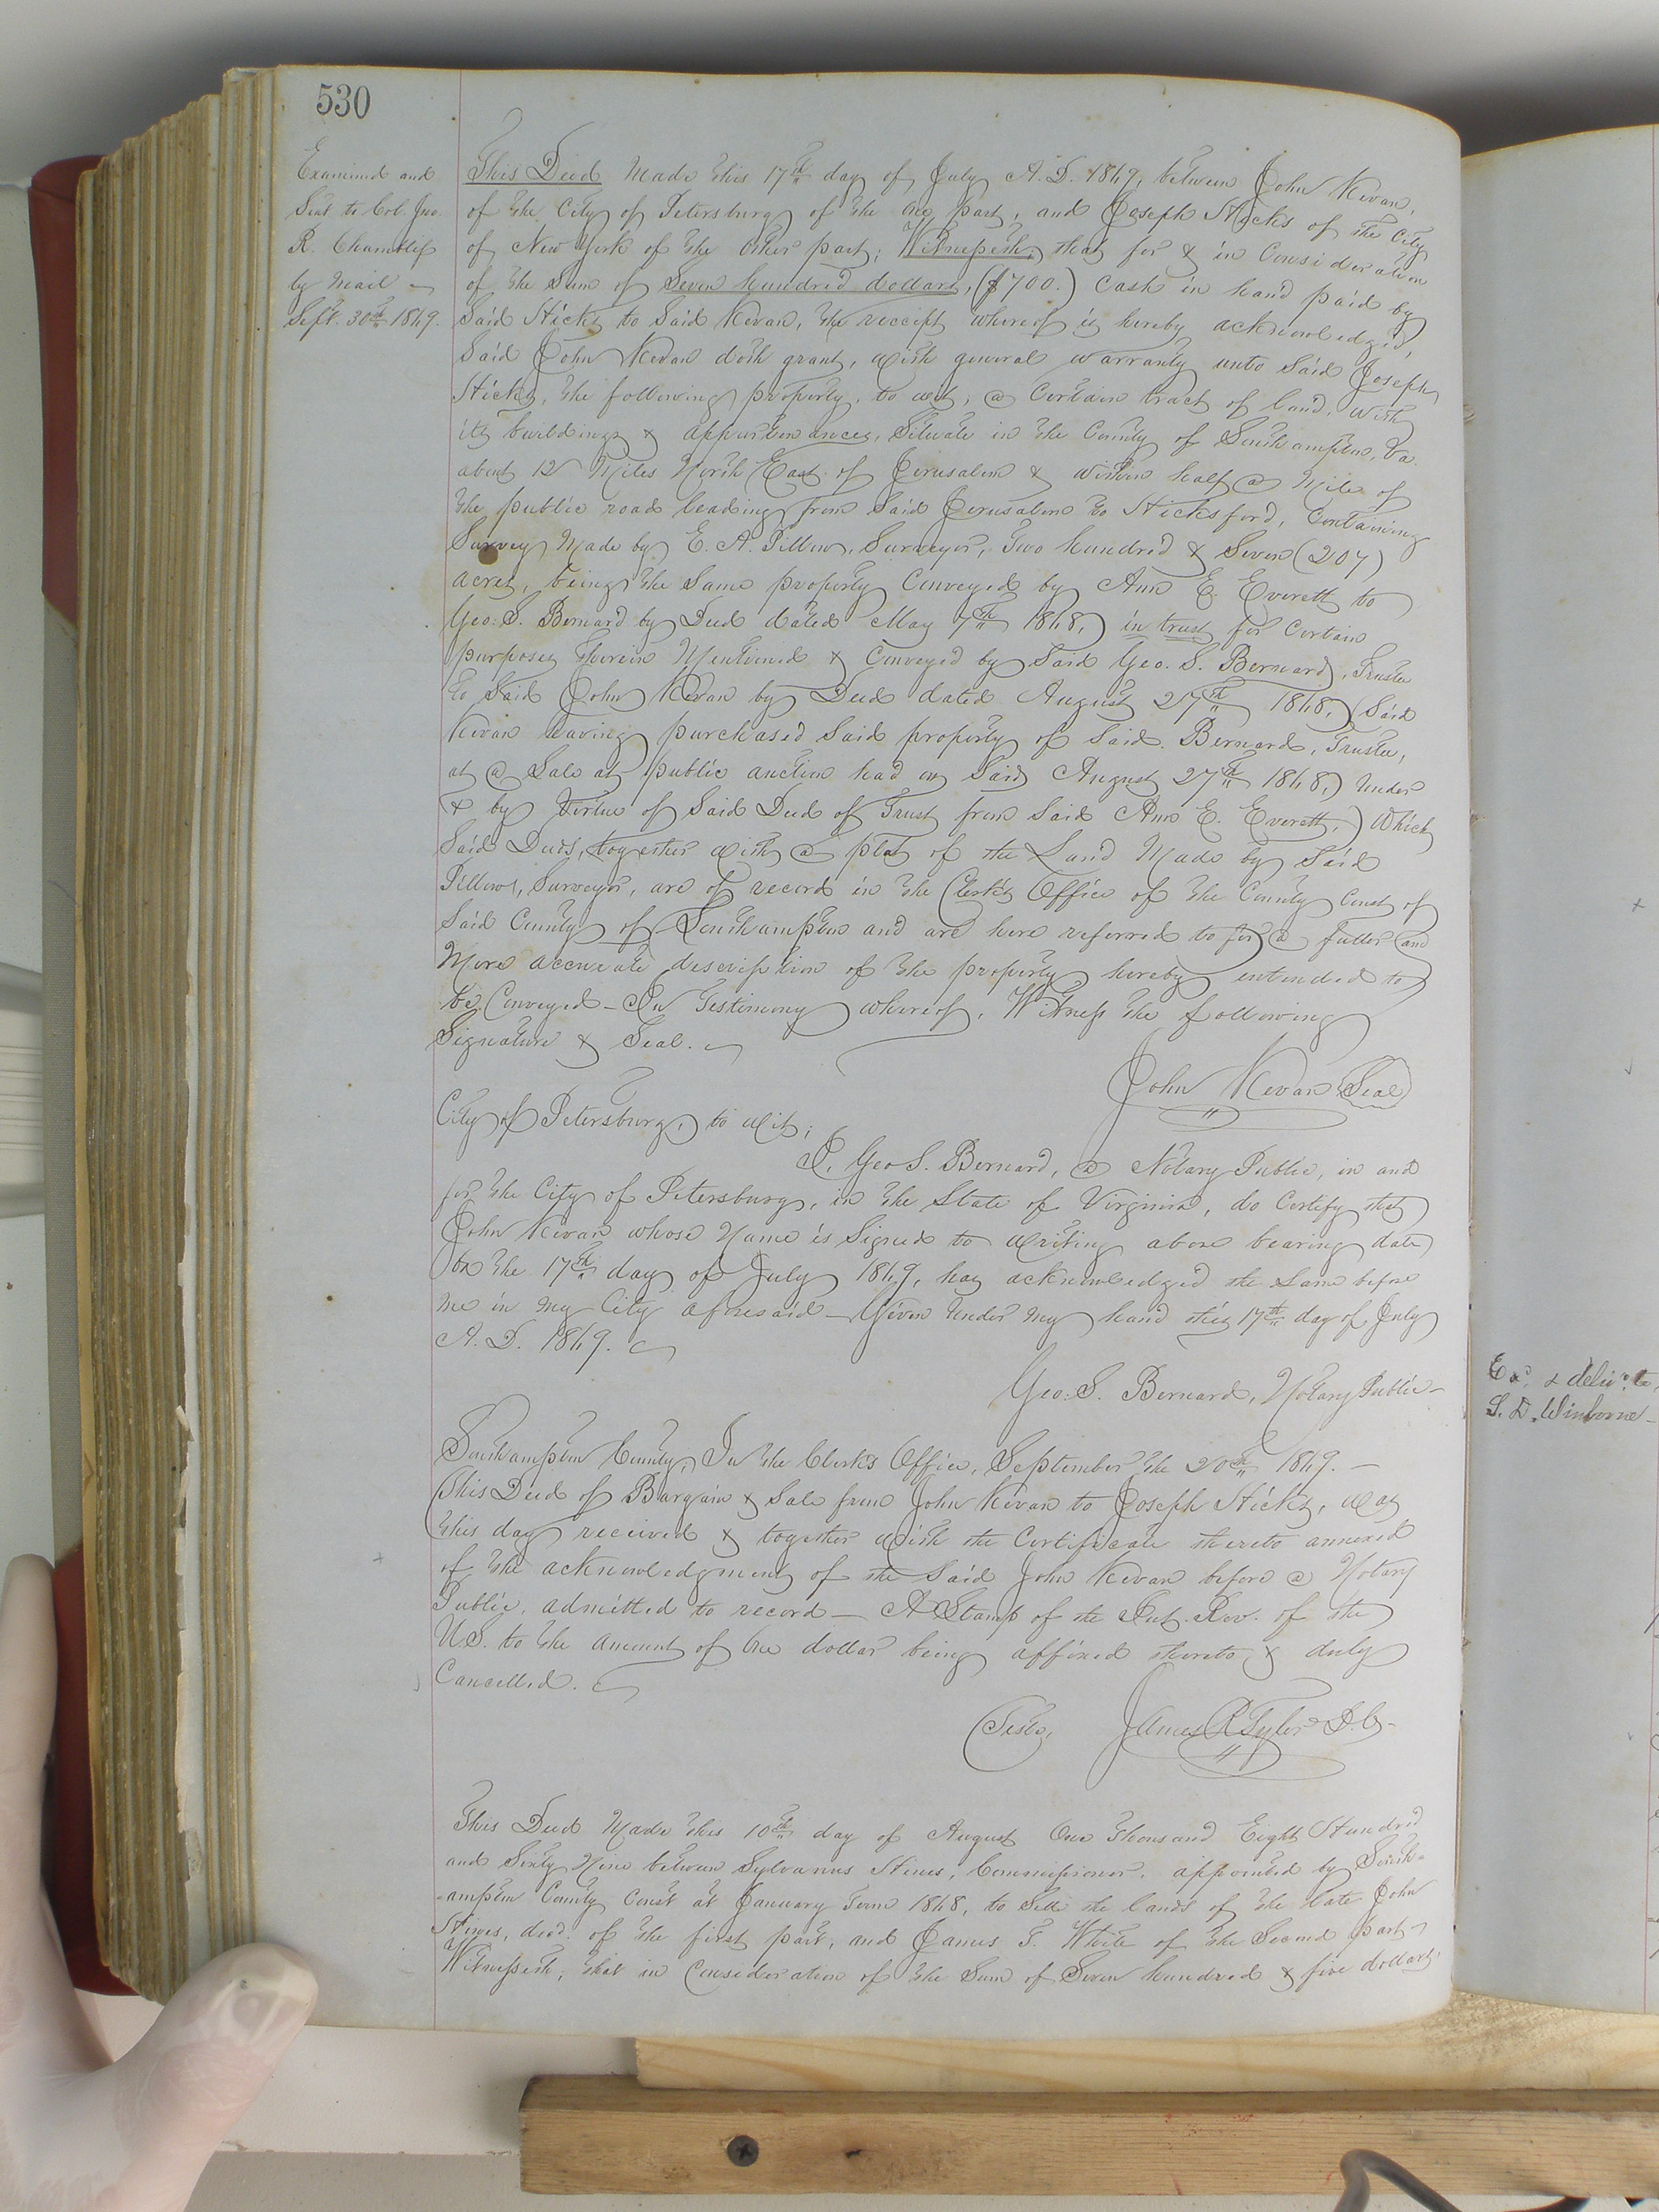 530
Examined and
Sent to Col. Jno.
R. Chambliss
by Mail
Sept. 30th 1869.
This Deed Made this 17th day of July A. D. 1869, between John Kevan,
of the City of Petersburg of the one part, and Joseph Hicks of the City
of New York of the other part; Witnesseth, that for & in Consideration
of the Sum of Seven hundred dollars, ($700.) Cash in hand paid by
Said Hicks to Said Kevan, the receipt whereof is hereby acknowledged,
Said John Kevan doth grant, with general warranty unto Said Joseph
Hicks, the following property, to wit, a Certain tract of land, with
its buildings & appurtenances, Situate in the County of Southampton, Va.
about 12 Miles North East of Jerusalem & within half a Mile of
the public road leading from Said Jerusalem to Hicksford, Containing
Survey Made by E. A. Pillow, Surveyor, Two hundred & Seven (207)
acres, being the Same property Conveyed by Ann E. Everett to
Geo: S. Bernard by Deed dated May 7th 1868, in trust for Certain
purposes therein Mentioned & Conveyed by Said Geo. S. Bernard, Trustee
to Said John Kevan by Deed dated August 27th 1868, (Said
Kevan having purchased Said property of Said Bernard, Trustee,
at a Sale at public auction had on Said August 27th 1868, under
& by Virtue of Said Deed of Trust from Said Ann E. Everett,) Which
Said Deeds, together with a plat of the Land Made by Said
Pillow, Surveyor, are of record in the Clerk's Office of the County Court of
Said County of Southampton and are here referred to for a fuller and
More accurate description of the property hereby intended to
be Conveyed - In Testimony whereof, Witness the following
Signature & Seal.
John Kevan Seal
City of Petersburg, to wit;
I, Geo S. Bernard, a Notary Public, in and
for the City of Petersburg, in the State of Virginia, do Certify that
John Kevan whose Name is Signed to writing above bearing date
on the 17th day of July 1869, has acknowledged the Same before
me in my City aforesaid - Given under my hand this 17th day of July
A. D. 1869.
Geo: S. Bernard, Notary Public -
Southampton County, In the Clerk's Office, September the 20th 1869. -
This Deed of Bargain & Sale from John Kevan to Joseph Hicks, was
this day received & together with the Certificate thereto annexed
of the acknowledgment of the Said John Kevan before a Notary
Public, admitted to record - A Stamp of the Int. Rev. of the
U.S. to the amount of One dollar being affixed thereto & duly
Cancelled.
Teste, James R Tyler D. C. -
This Deed Made this 10th day of August One Thousand Eight Hundred
and Sixty Nine between Sylvanus Hines, Commissioner, appointed by South=
=ampton County Court at January Term 1868, to Sell the lands of the late John
Hines, decd. of the first part, and James T. White of the Second part -
Witnesseth, that in Consideration of the Sum of Seven hundred & five dollars
Ex. & deliv. to
S. D. Winborne -